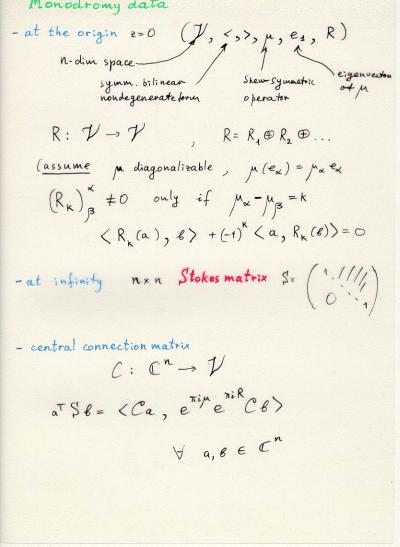 Monodromy data
- at the origin z=0 (𝒱, <,>, μ, e₁, R)
n-dim space
symm. bilinear nondegenerate form
skew-symmetric operator
eigenvector of μ
R: 𝒱 → 𝒱 , R = R₁ ⊕ R₂ ⊕ ...
(assume μ diagonalizable, μ(e_α) = μ_α e_α
(R_k)^α_β ≠ 0 only if μ_α - μ_β = k
<R_k(a), b> + (-1)^k <a, R_k(b)> = 0
- at infinity n×n Stokes matrix S = ( 1 ⋱ 0 1 )
- central connection matrix
C: ℂⁿ → 𝒱
aᵀSb = <Ca, e^{πiμ} e^{πiR} Cb>
∀ a, b ∈ ℂⁿ